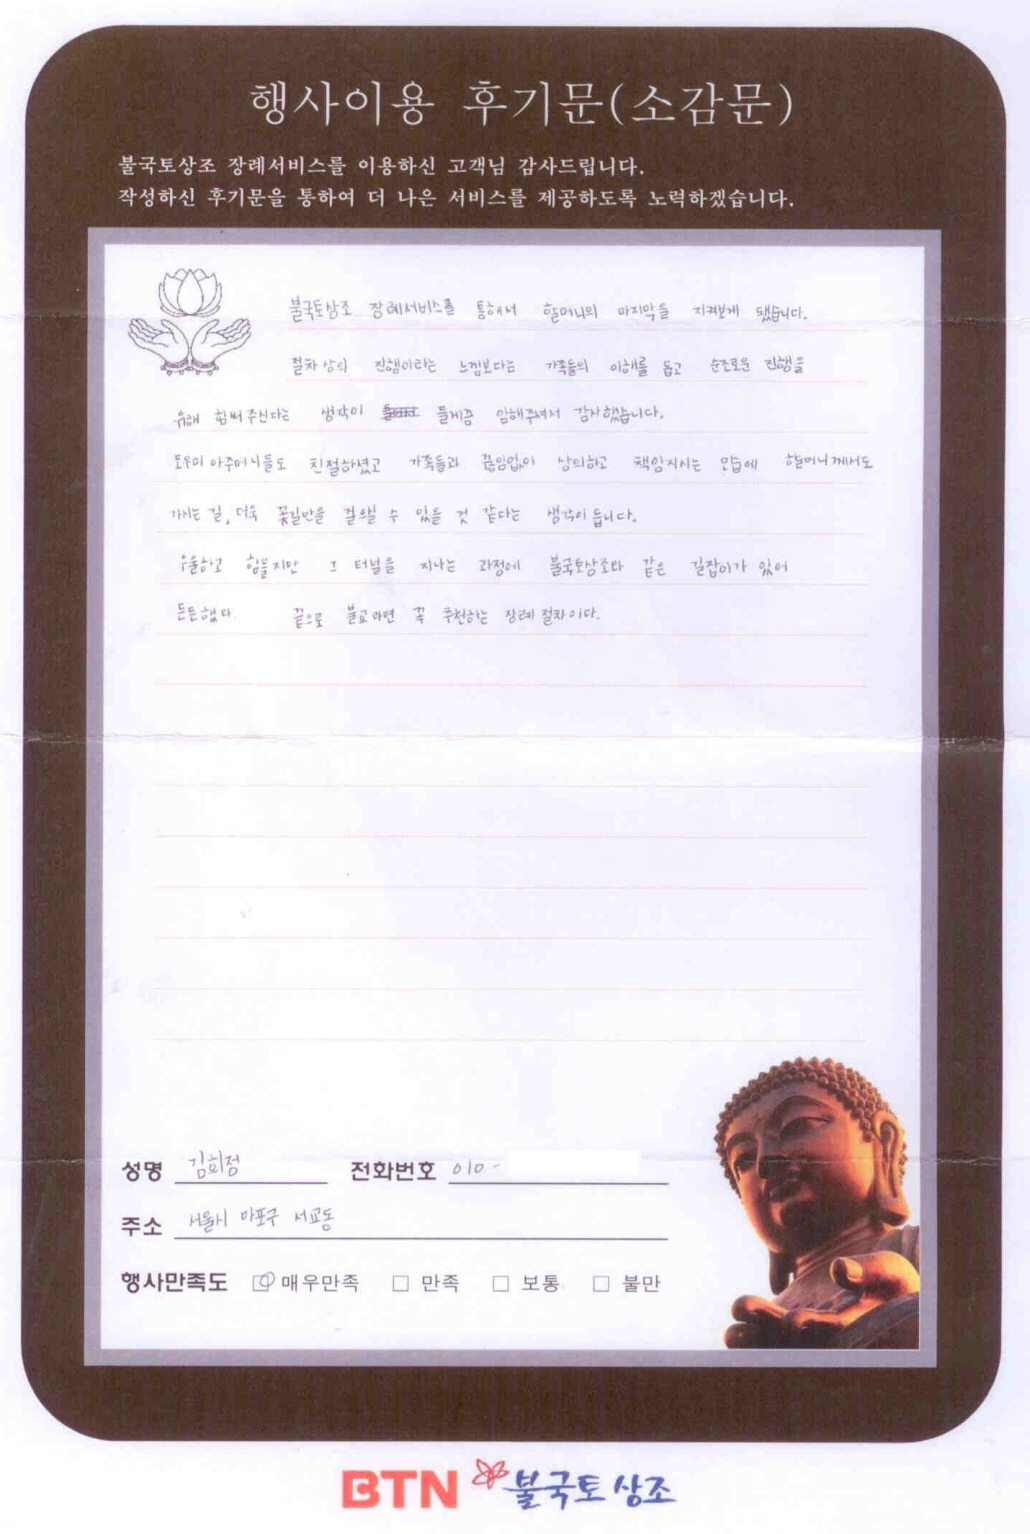 행사이용 후기문(소감문)
불국토상조 장례서비스를 이용하신 고객님 감사드립니다.
작성하신 후기문을 통하여 더 나은 서비스를 제공하도록 노력하겠습니다.
불국토상조 장례서비스를 통해서 할머니의 마지막을 지켜보게 됐습니다.
절차상의 진행이라는 느낌보다는 가족들의 이해를 돕고 순조로운 진행을
위해 힘써주신다는 생각이 들게끔 임해주셔서 감사했습니다.
도우미 아주머니들도 친절하셨고 가족들과 끊임없이 상의하고 책임지시는 모습에 할머니께서도
가시는 길, 더욱 꽃길만을 걸으실 수 있을 것 같다는 생각이 듭니다.
우울하고 힘들지만 그 터널을 지나는 과정에 불국토상조와 같은 길잡이가 있어
든든했다. 끝으로 불교라면 꼭 추천하는 장례 절차이다.
성명 김희정 전화번호 010-
주소 서울시 마포구 서교동
행사만족도 매우만족 만족 보통 불만
BTN 불국토상조